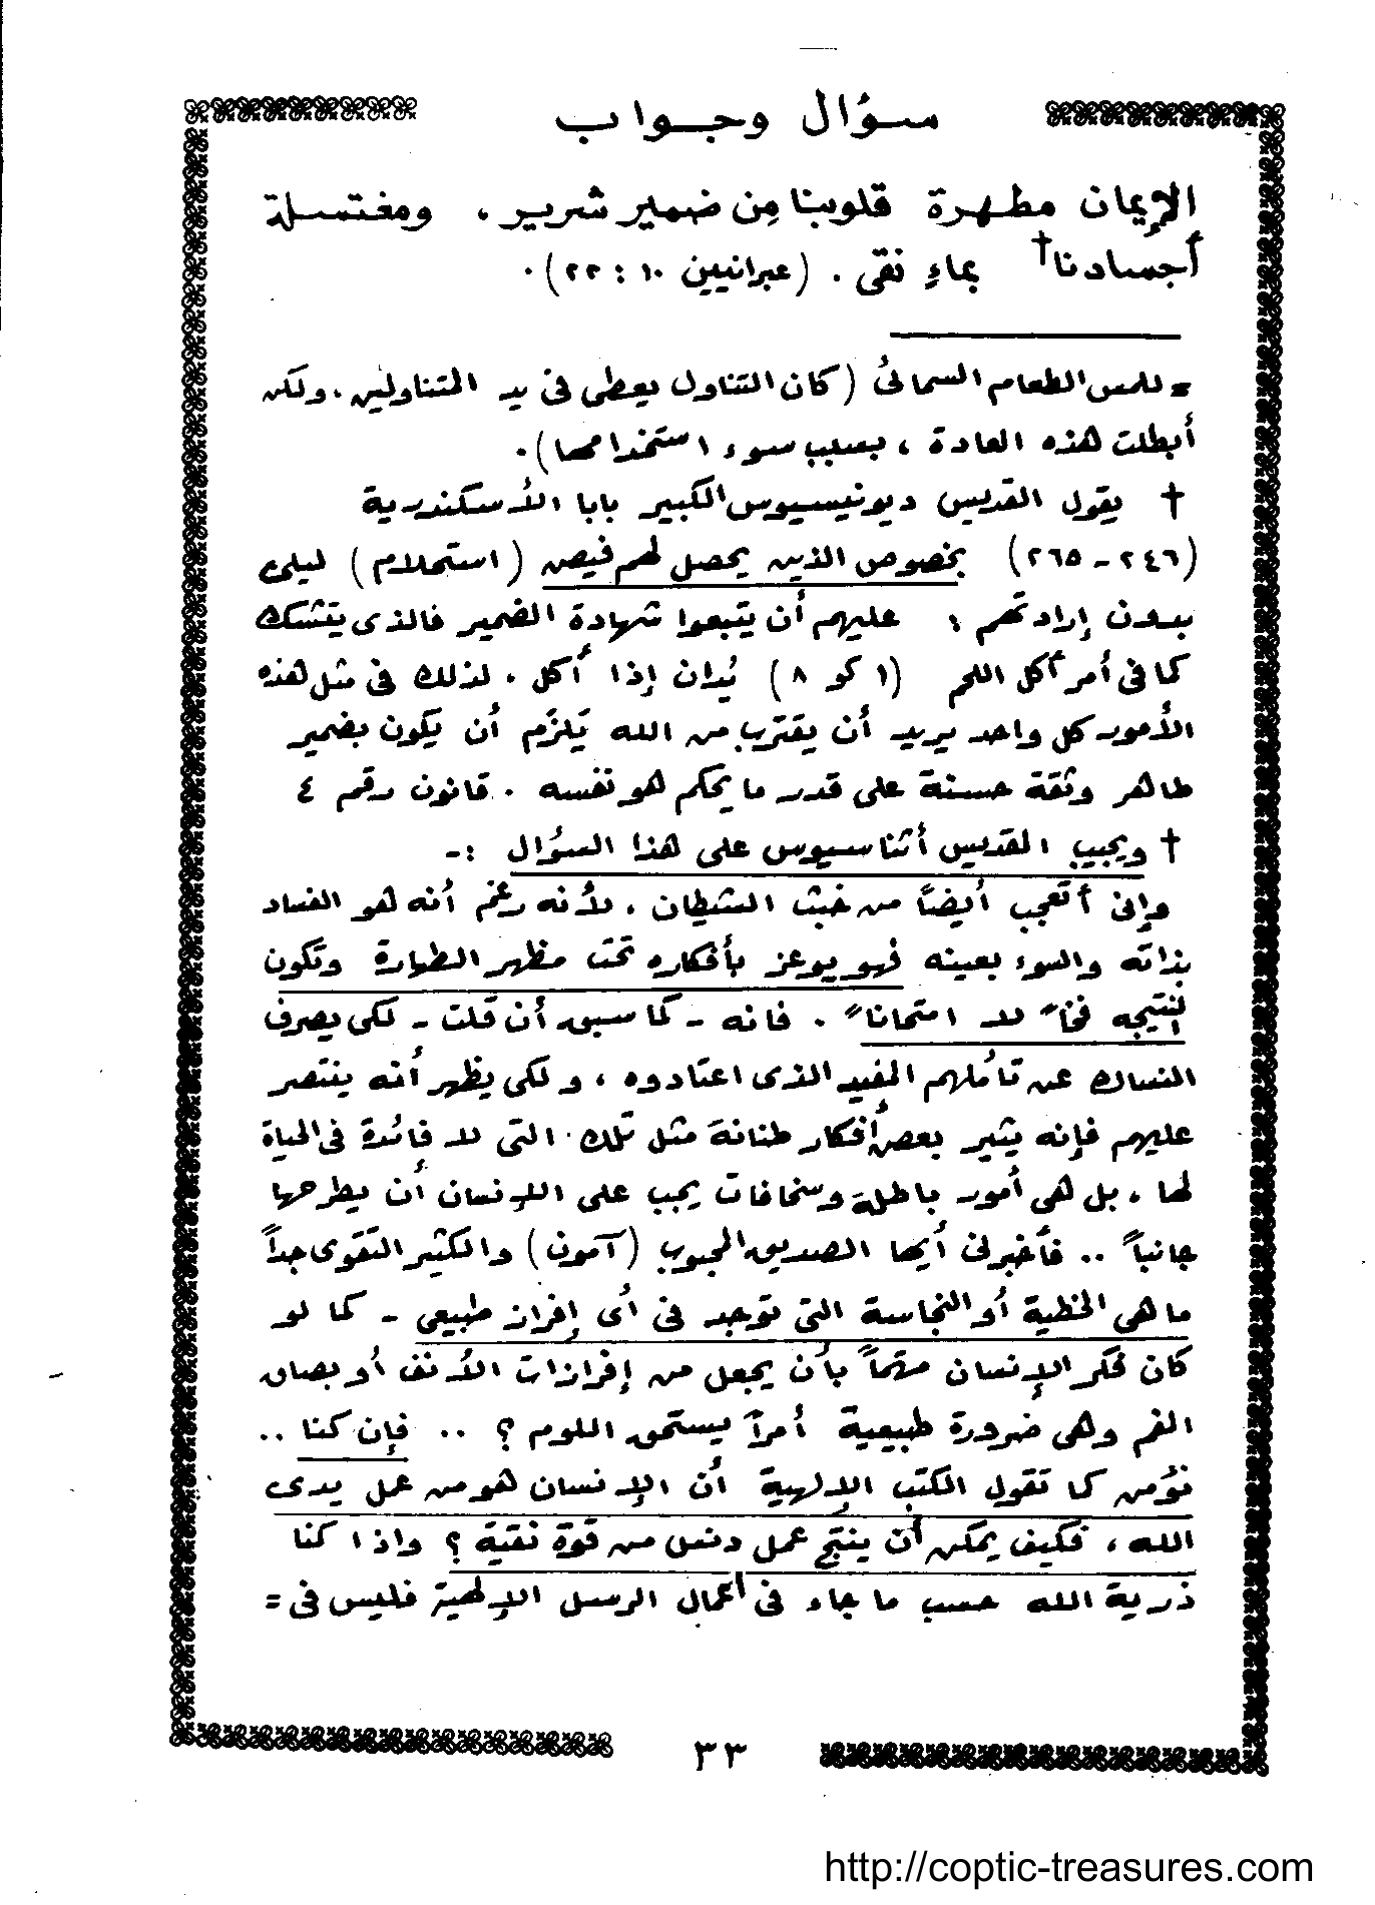 سؤال وجواب
الإيمان مطهرة قلوبنا مِن ضمير شرير ، ومغتسلة
أجسادنا† بماءِ نقى . (عبرانيين ١٠ : ٢٢) .
= للمس الطعام السمائى (كان التناول يعطى فى يد المتناولين ، ولكن
أبطلت هذه العادة ، بسبب سوء استخدامها) .
† يقول القديس ديونيسيوس الكبير بابا الأسكندرية
(٢٤٦ - ٢٦٥) بخصوص الذين يحصل لهم فيض (استحلام) ليلى
بدون إرادتهم : عليهم أن يتبعوا شهادة الضمير فالذى يتشكك
كما فى أمر أكل اللحم (١ كو ٨) يُدان إذا أكل ، لذلك فى مثل هذه
الأمور كل واحد يريد أن يقترب من الله يَلزَم أن يكون بضمير
طاهر وثقة حسنة على قدر ما يحكم هو نفسه . قانون رقم ٤
† ويجيب القديس أثناسيوس على هذا السؤال :-
وإنى أتعجب أيضاً من خبث الشيطان ، لأنه رغم أنه هو الفساد
بذاته والسوء بعينه فهو يوعز بأفكاره تحت مظهر الطهارة وتكون
النتيجه فخاً لا امتحاناً . فانه - كما سبق أن قلت - لكى يصرف
النساك عن تأملهم المفيد الذى اعتادوه ، ولكى يظهر أنه ينتصر
عليهم فإنه يثير بعض أفكار طنانة مثل تلك التى لا فائدة فى الحياة
لها ، بل هى أمور باطلة وسخافات يجب على الإنسان أن يطرحها
جانباً .. فأخبرنى أيها الصديق المحبوب (آمون) والكثير التقوى جداً
ما هى الخطية أو النجاسة التى توجد فى أى إفراز طبيعى - كما لو
كان فكر الإنسان متهماً بأن يجعل من إفرازات الأنف أو بصاق
الفم وهى ضرورة طبيعية أمراً يستحق اللوم ؟ .. فإن كنا ..
نؤمن كما تقول الكتب الإلهية أن الإنسان هو من عمل يدى
الله ، فكيف يمكن أن ينتج عمل دنس من قوة نقية ؟ واذا كنا
ذرية الله حسب ما جاء فى أعمال الرسل الإلهية فليس فى =
٣٣
http://coptic-treasures.com